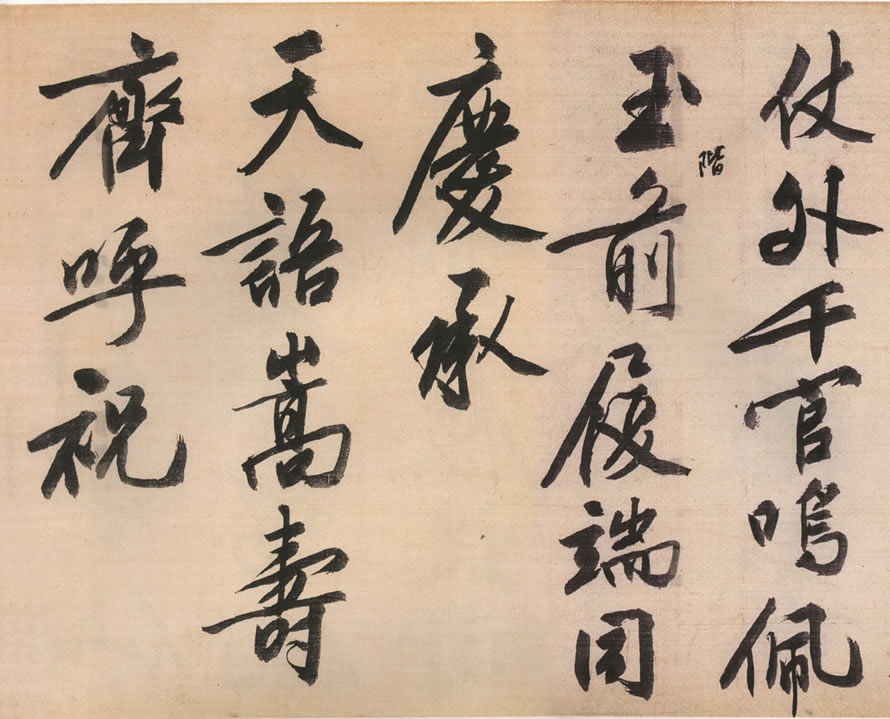 仗外千官鳴佩
玉階前履端同
慶承
天語嵩壽
齊呼祝